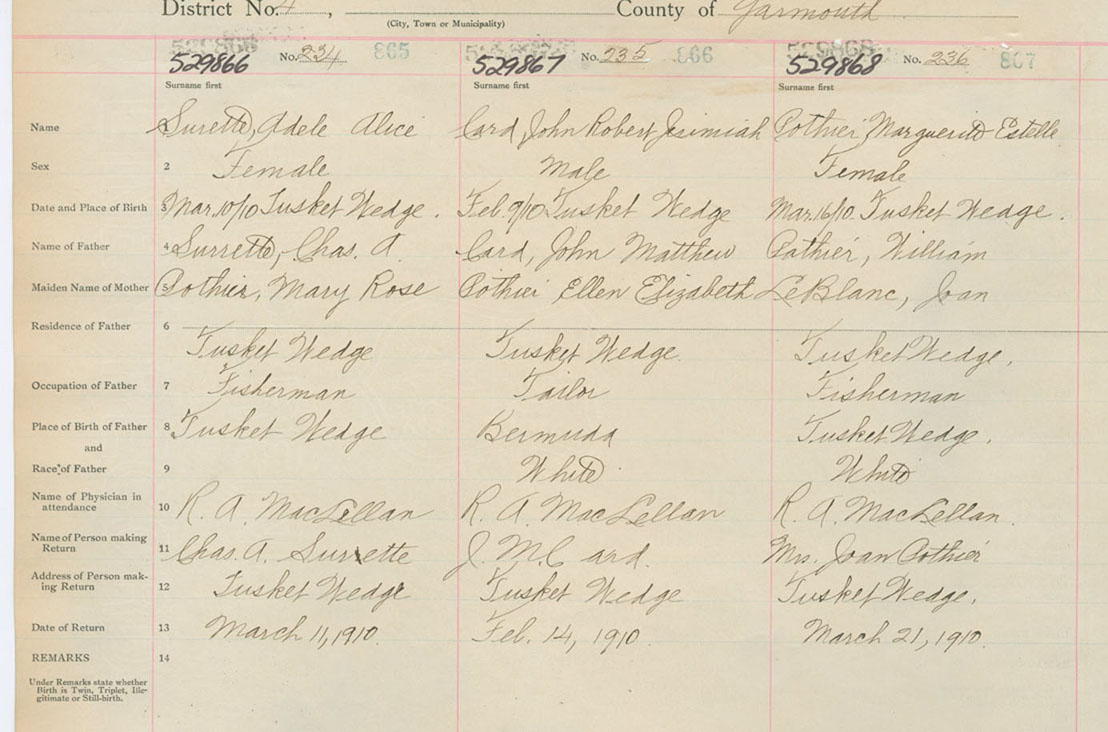 District No. 4, County of Yarmouth
(City, Town or Municipality)
529866 No. 234 865 529867 No. 235 866 529868 529868 No. 236 867
Surname first Surname first Surname first
Name 1 Surette, Adele Alice Card, John Robert Jesimiah Pothier, Marguerite Estelle
Sex 2 Female Male Female
Date and Place of Birth 3 Mar. 10/10 Tusket Wedge. Feb. 9/10 Tusket Wedge Mar. 16/10. Tusket Wedge.
Name of Father 4 Surrette, Chas. A. Card, John Matthew Pothier, William
Maiden Name of Mother 5 Pothier, Mary Rose Pothier Ellen Elizabeth LeBlanc, Joan
Residence of Father 6 Tusket Wedge Tusket Wedge. Tusket Wedge.
Occupation of Father 7 Fisherman Tailor Fisherman
Place of Birth of Father 8 Tusket Wedge Bermuda Tusket Wedge.
and
Race of Father 9 White White
Name of Physician in attendance 10 R. A. MacLellan R. A. MacLellan R. A. MacLellan.
Name of Person making Return 11 Chas. A. Surrette J. M. Card. Mrs. Joan Pothier
Address of Person making Return 12 Tusket Wedge Tusket Wedge Tusket Wedge.
Date of Return 13 March 11, 1910. Feb. 14, 1910. March 21, 1910.
REMARKS 14
Under Remarks state whether
Birth is Twin, Triplet, Ille-
gitimate or Still-birth.